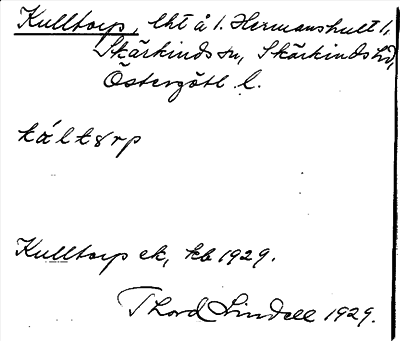 Kulltorp, lht å 1. Hermanshult 1,
Skärkinds sn, Skärkinds hd,
Östergötl. l.
kált8rp
Kulltorp ek, kb 1929.
Thord Lindell 1929.